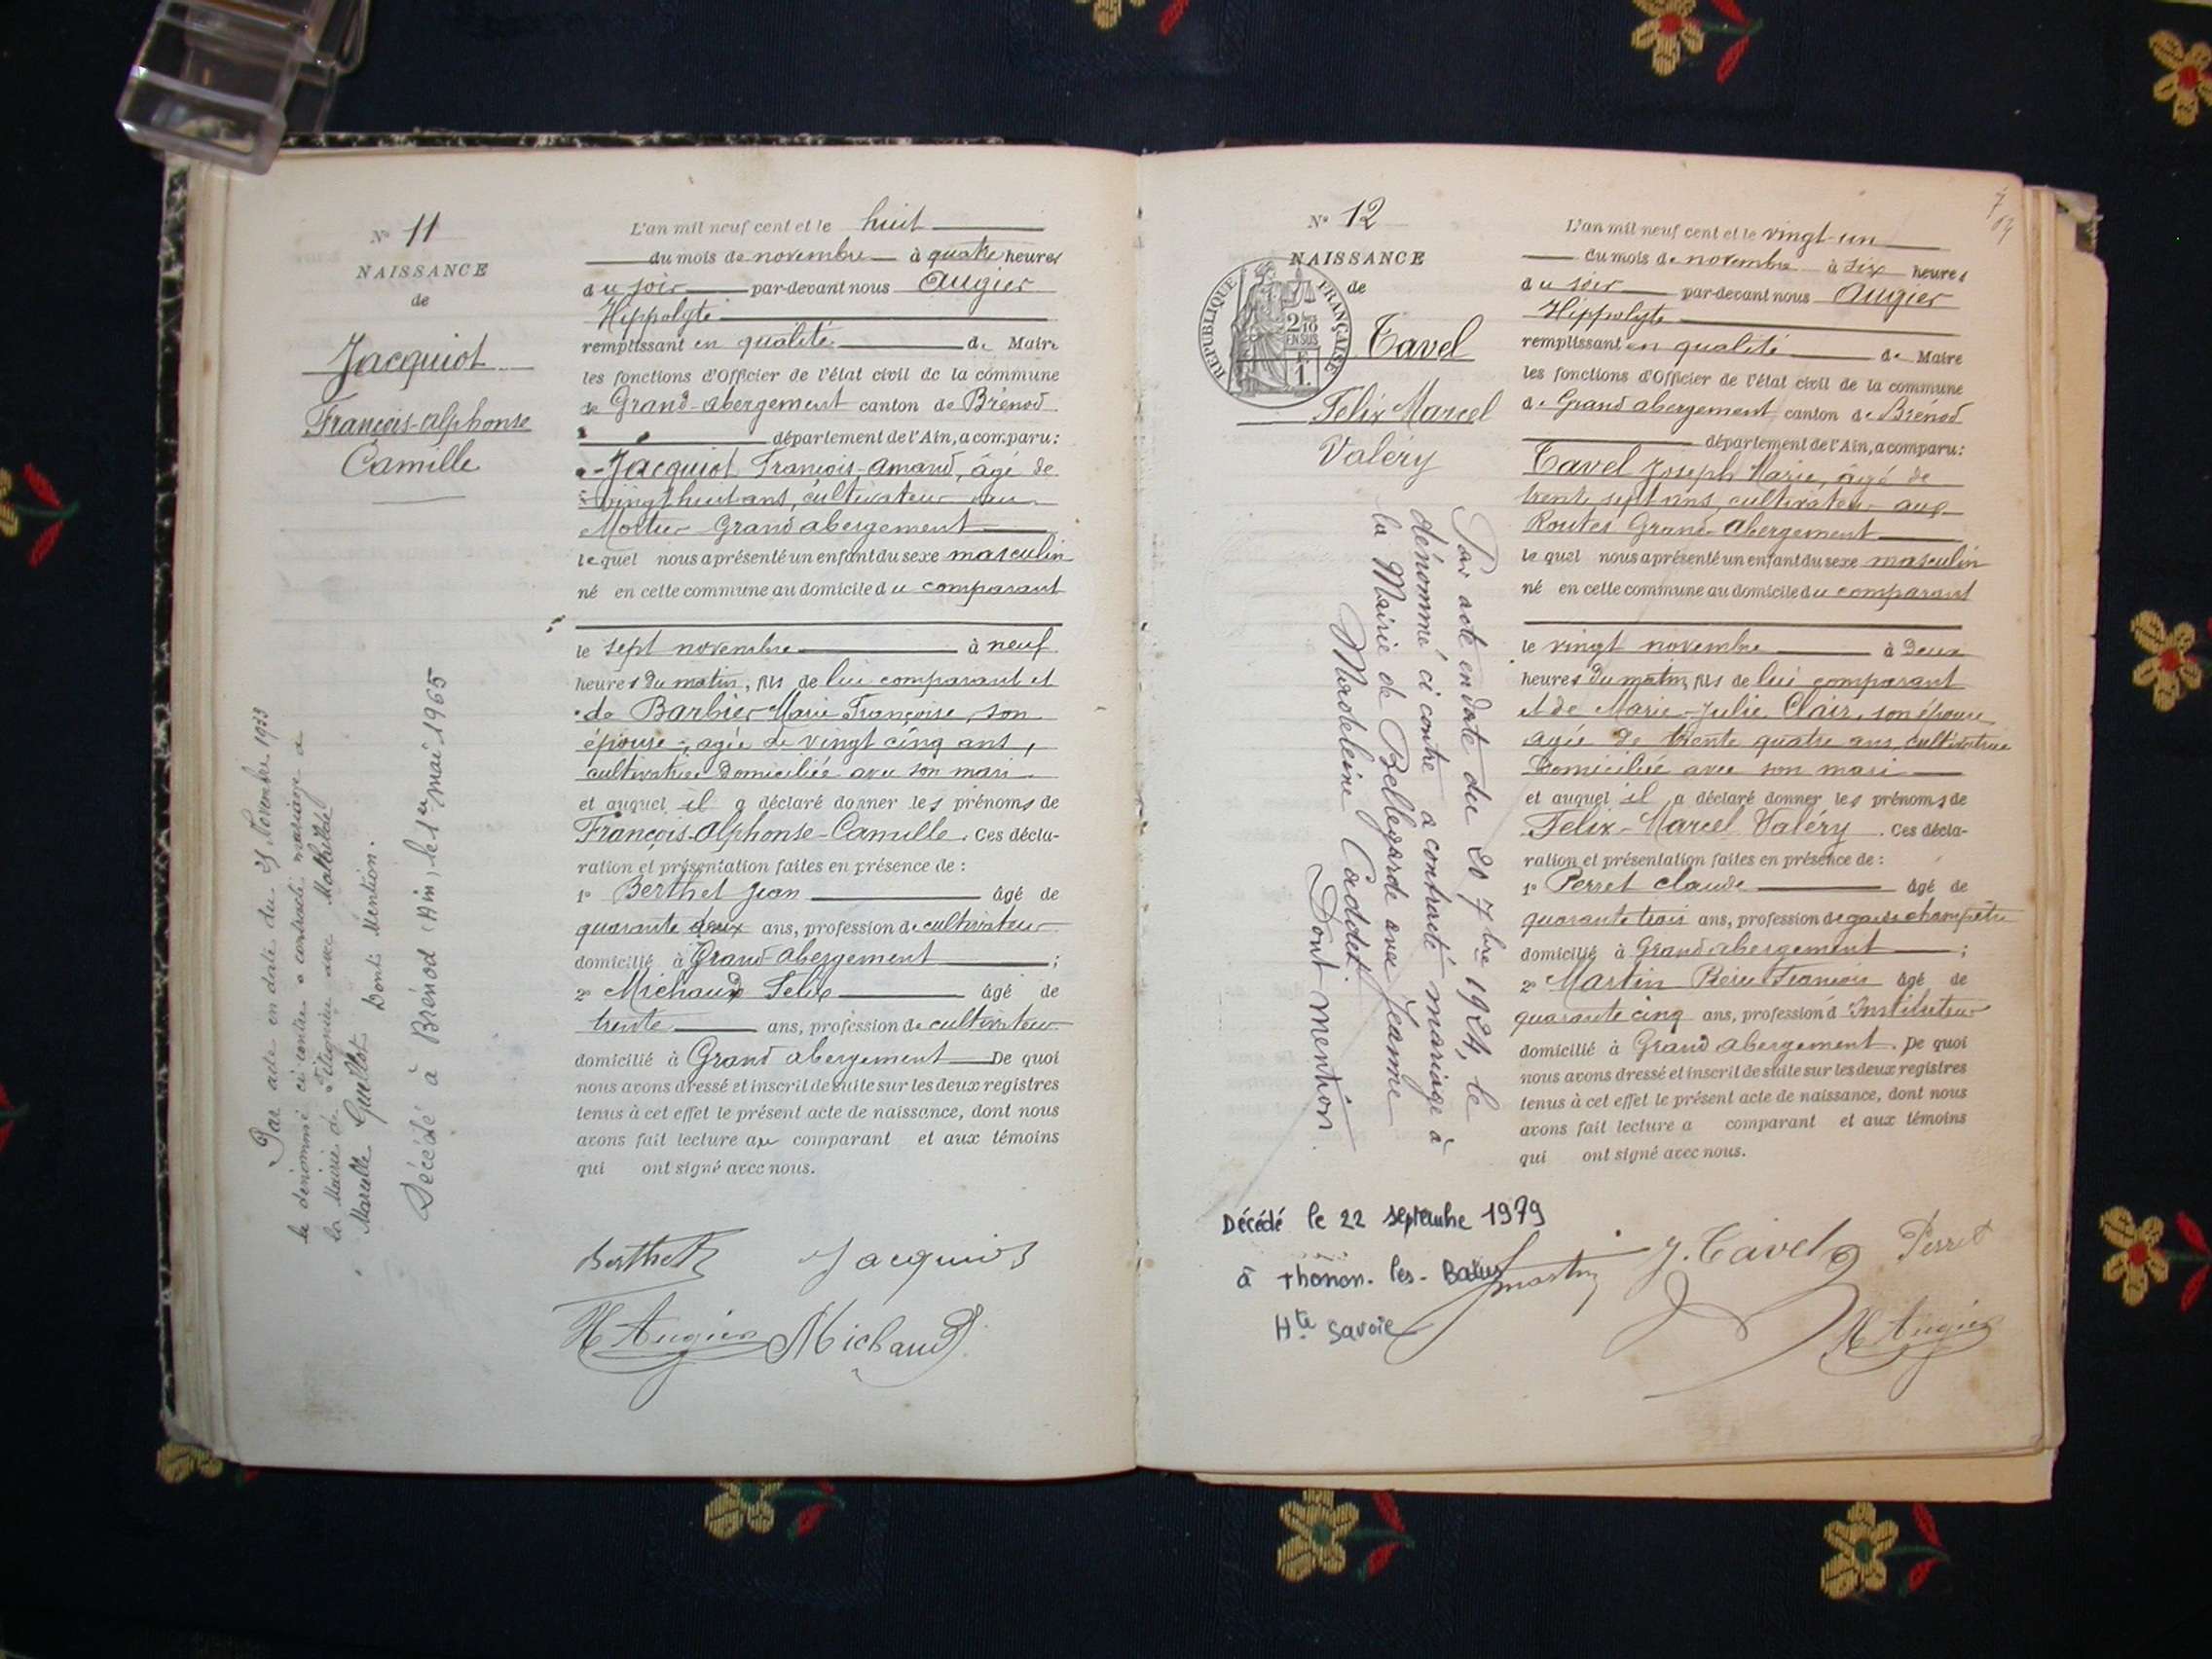 N° 11
NAISSANCE
de
Jacquiot
François-Alphonse
Camille
Par acte en date du 25 Novembre 1933
le dénommé ci contre a contracté mariage à
la Mairie de avec Mathilde
Marcelle Guillot Dont Mention.
Décédé à Brénod (Ain) le 1er mai 1965
L'an mil neuf cent et le huit
du mois de novembre à quatre heures
du soir par-devant nous Augier
Hippolyte
remplissant en qualité de Maire
les fonctions d'Officier de l'état civil de la commune
de Grand-abergement canton de Brénod
département de l'Ain, a comparu:
Jacquiot François-Amand, âgé de
vingt huit ans, cultivateur au
Mortier Grand abergement
lequel nous a présenté un enfant du sexe masculin
né en cette commune au domicile du comparant
le sept novembre à neuf
heures du matin, fils de lui comparant et
de Barbier Marie Françoise, son
épouse, agée de vingt cinq ans,
cultivatrice domiciliée avec son mari
et auquel il a déclaré donner les prénoms de
François-Alphonse-Camille. Ces décla-
ration et présentation faites en présence de :
1° Berthet Jean âgé de
quarante deux ans, profession de cultivateur
domicilié à Grand abergement ;
2° Michaud Felix âgé de
trente ans, profession de cultivateur
domicilié à Grand abergement De quoi
nous avons dressé et inscrit de suite sur les deux registres
tenus à cet effet le présent acte de naissance, dont nous
avons fait lecture au comparant et aux témoins
qui ont signé avec nous.
Berthet Jacquiot
H Augier Michaud
7
N° 12
NAISSANCE
de
RÉPUBLIQUE FRANÇAISE
2/10
EN SUS
1 F.
Tavel
Felix Marcel
Valéry
Par acte en date du 20 7bre 1924, le
dénommé ci contre a contracté mariage à
la Mairie de Bellegarde avec Jeanne
Madeleine Caddet
Dont mention.
Décédé le 22 septembre 1979
à Thonon-les-Bains
Hte Savoie
L'an mil neuf cent et le vingt-un
du mois de novembre à six heures
du soir par-devant nous Augier
Hippolyte
remplissant en qualité de Maire
les fonctions d'Officier de l'état civil de la commune
de Grand abergement canton de Brénod
département de l'Ain, a comparu:
Tavel Joseph Marie, âgé de
trente sept ans, cultivateur aux
Routes Grand-Abergement
lequel nous a présenté un enfant du sexe masculin
né en cette commune au domicile du comparant
le vingt novembre à deux
heures du matin, fils de lui comparant
et de Marie-Julie Clair, son épouse
agée de trente quatre ans, cultivatrice
domiciliée avec son mari
et auquel il a déclaré donner les prénoms de
Felix-Marcel Valéry. Ces décla-
ration et présentation faites en présence de :
1° Perret Claude âgé de
quarante trois ans, profession de garde champêtre
domicilié à Grand abergement ;
2° Martin François âgé de
quarante cinq ans, profession d'Instituteur
domicilié à Grand abergement. De quoi
nous avons dressé et inscrit de suite sur les deux registres
tenus à cet effet le présent acte de naissance, dont nous
avons fait lecture a comparant et aux témoins
qui ont signé avec nous.
Martin J. Tavel Perret
H Augier